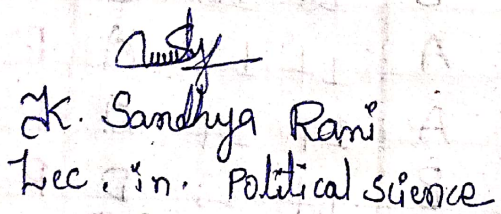 K. Sandhya Rani
Lec. in. Political science